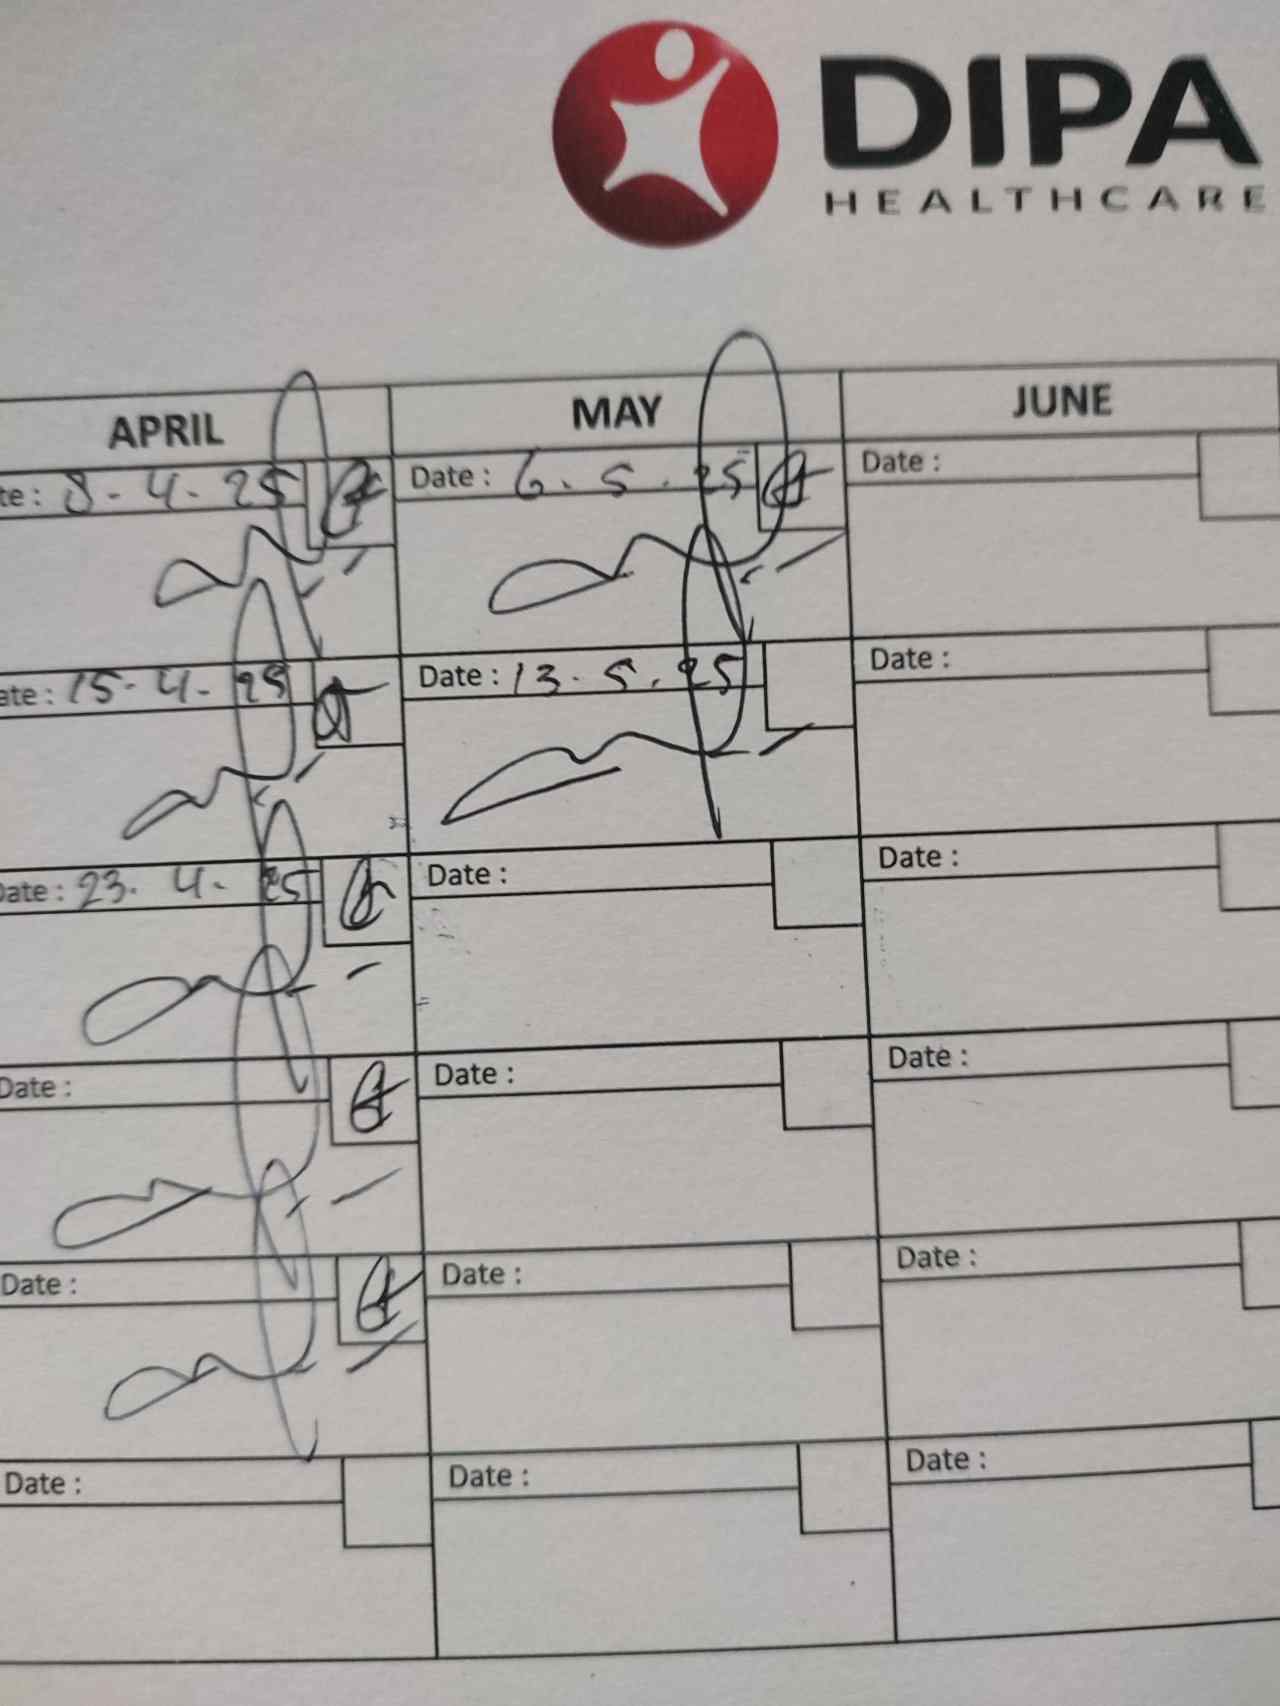 DIPA
HEALTHCARE
APRIL MAY JUNE
te : 8-4-25 Date : 6.5.25 Date :
ate : 15-4-25 Date : 13.5.25 Date :
Date : 23.4-25 Date : Date :
Date : Date : Date :
Date : Date : Date :
Date : Date : Date :